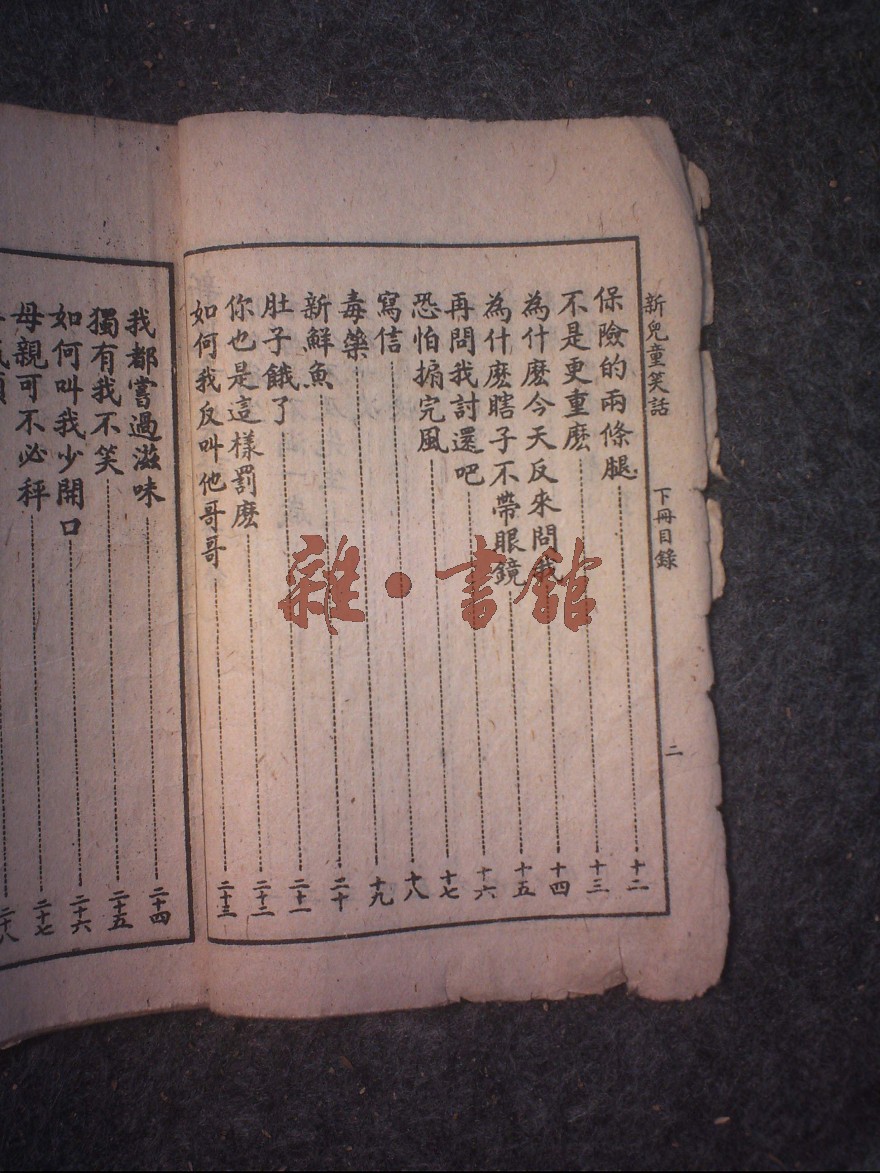 新兒童笑話 下冊目錄 二
保險的兩條腿 十二
不是更重麽 十三
為什麽今天反來問我 十四
為什麽瞎子不帶眼鏡 十五
再問我討還吧 十六
恐怕搧完風 十七
寫信 十八
毒藥 十九
新鮮魚 二十
肚子餓了 二十一
你也是這樣罰麽 二十二
如何我反叫他哥哥 二十三
我都嘗過滋味 二十四
獨有我不笑 二十五
如何叫我少開口 二十六
母親可不必秤 二十七
二十八
雜·書館